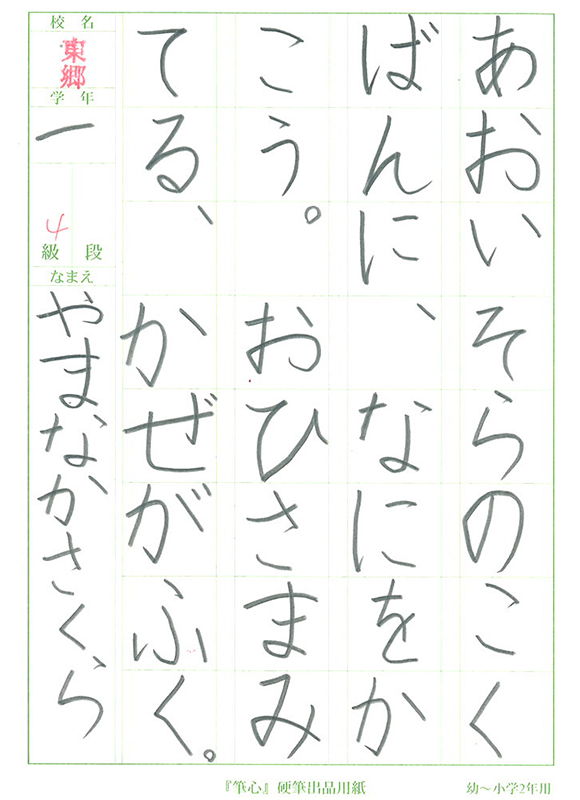 あおいそらのこく
ばんに、なにをか
こう。おひさまみ
てる、かぜがふく。
校名
東郷
学年
一
4
級段
なまえ
やまなかさくら
『筆心』硬筆出品用紙
幼～小学2年用